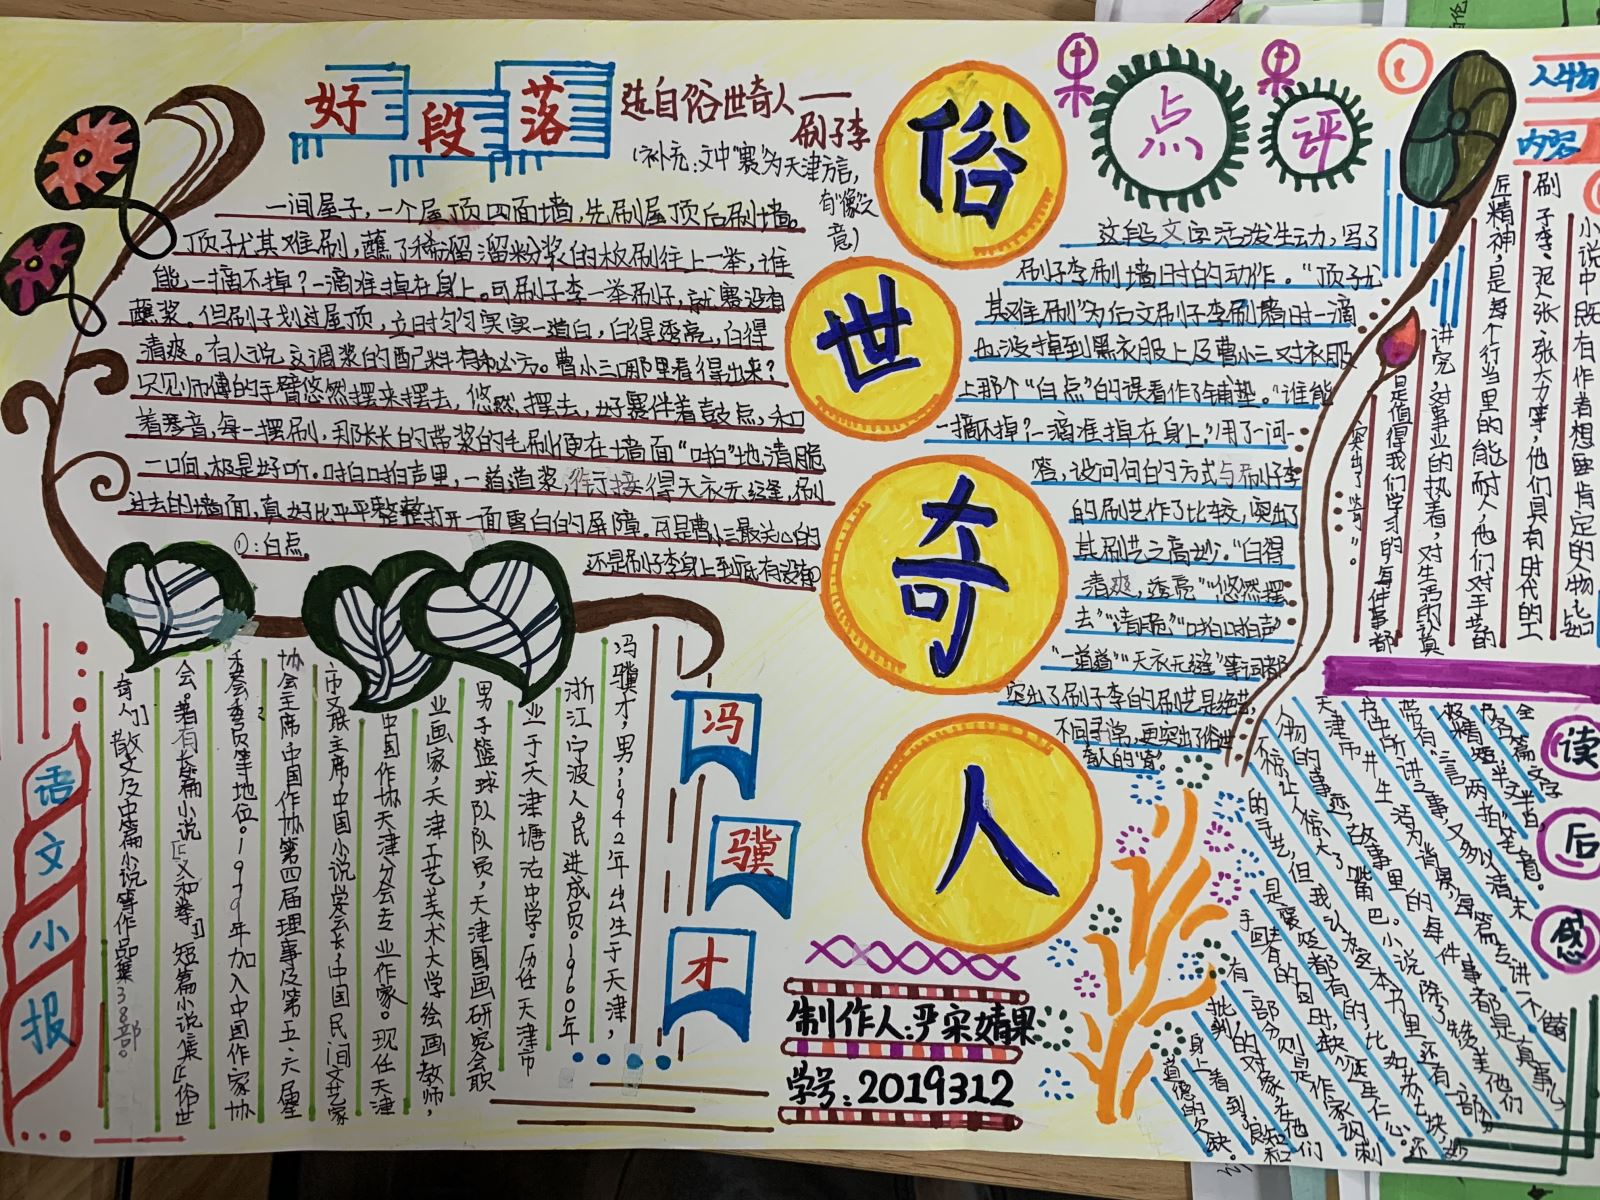 好段落
选自俗世奇人——
刷子李
(补充:文中"赛"为天津方言,
有"像"之
意)
一间屋子,一个屋顶四面墙,先刷屋顶后刷墙。
顶子尤其难刷,蘸了稀溜溜粉浆的板刷往上一举,谁
能一滴不掉?一滴准掉在身上。可刷子李一举刷子,就赛没有
蘸浆。但刷子划过屋顶,立时匀匀实实一道白,白得透亮,白得
清爽。有人说这调浆的配料有秘方。曹小三哪里看得出来?
只见师傅的手臂悠然摆来摆去,悠然摆去,好赛伴着鼓点,和
着琴音,每一摆刷,那长长的带浆的毛刷便在墙面"啪"地清脆
一响,极是好听。啪啪声里,一道道浆,衔接得天衣无缝,刷
过去的墙面,真好比平平整整打开一面雪白的屏障。可是曹小三最关心的
还是刷子李身上到底有没有①
①:白点。
俗
世
奇
人
点评
这段文字活泼生动,写了
刷子李刷墙时的动作。"顶子尤
其难刷"为后文刷子李刷墙时一滴
也没掉到黑衣服上及曹小三对衣服
上那个"白点"的误看作了铺垫。"谁能
一滴不掉?一滴准掉在身上。"用了一问一
答,设问句的方式与刷子李
的刷艺作了比较,突出了
其刷艺之高妙。"白得
清爽,透亮""悠然摆
去""清脆""啪啪声"
"一道道""天衣无缝"等词都
突出了刷子李的刷艺是绝艺,
不同寻常,更突出了俗世
奇人的"奇"。
人物
内容
小说中既有作者想要肯定的人物比如
刷子李、泥人张、张大力等,他们具有时代的工
匠精神,是每个行当里的能耐人,他们对手艺的
讲究,对事业的执着,对生活的认真
是值得我们学习的每件事都
读后感
全篇文字
极精短,半文半白,
带有"三言两拍"笔意。
书中所讲之事,又多以清末
天津市井生活为背景,每篇专讲一个
人物的事迹,故事里的每件事都是真事儿
冯骥才
冯骥才,男,1942年出生于天津,
浙江宁波人,民进成员。1960年
业于天津塘沽中学。历任天津市
男子篮球队队员,天津国画研究会职
业画家,天津工艺美术大学绘画教师,
中国作协天津分会专业作家。现任天津
市文联主席,中国小说学会会长,中国民间文艺家
协会主席,中国作协第四届理事及第五、六届
委会委员等地位。1979年加入中国作家协
会。著有长篇小说《义和拳》短篇小说集《俗世
奇人》散文及中篇小说等作品集38部。
语文小报
制作人:严宋婧果
学号:2019312